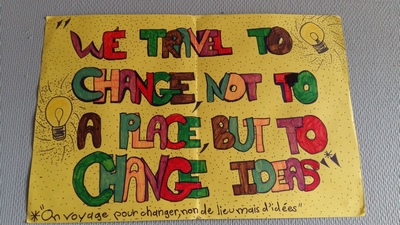 "WE TRAVEL TO
CHANGE, NOT TO
A PLACE, BUT TO
CHANGE IDEAS"*
*"On voyage pour changer, non de lieu mais d'idées"